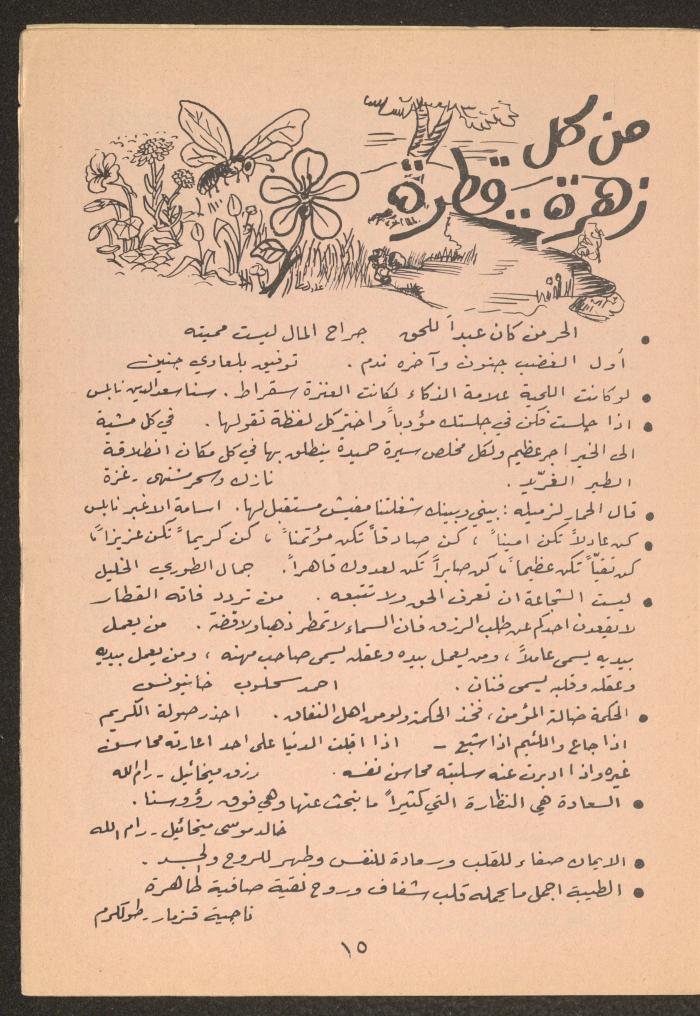 من كل
زهرة.. قطرة
• الحر من كان عبداً للحق جراح المال ليست مميته
أول الغضب جنون وآخره ندم . توفيق بلعاوي جنين
• لو كانت اللحية علامة الذكاء لكانت العنزة سقراط . سنا سعد الدين نابلس
• اذا جلست فكن في جلستك مؤدباً واختر كل لفظة تقولها . في كل مشية
الى الخير اجر عظيم ولكل مخلص سيرة حميدة ينطلق بها في كل مكان انطلاقة
الطير الغرّيد . نازك وسحر مشتهى - غزة
• قال الحمار لزميله : بيني وبينك شغلتنا مفيش مستقبل لها . اسامة الاغبر نابلس
• كن عادلاً تكن اميناً ، كن صادقاً تكن مؤتمناً ، كن كريماً تكن عزيزاً ،
كن تقيّاً تكن عظيماً ، كن صابراً تكن لعدوك قاهراً . جمال الطوري الخليل
• ليست الشجاعة ان تعرف الحق ولا تتبعه . من تردد فاته القطار
لا يقعدن احدكم عن طلب الرزق فان السماء لا تمطر ذهبا ولا فضة . من يعمل
بيديه يسمى عاملاً ، ومن يعمل بيده وعقله يسمى صاحب مهنه ، ومن يعمل بيديه
وعقله وقلبه يسمى فنان . احمد سحلوب خانيونس
• الحكمة ضالة المؤمن ، فخذ الحكمة ولو من اهل النفاق . احذر صولة الكريم
اذا جاع واللئيم اذا شبع – اذا اقبلت الدنيا على احد اعارته محاسن
غيره واذا ادبرت عنه سلبته محاسن نفسه . رزق ميخائيل - رام الله
• السعادة هي النظارة التي كثيراً ما نبحث عنها وهي فوق رؤوسنا .
خالد موسى ميخائيل - رام الله
• الايمان صفاء للقلب وسعادة للنفس وطهر للروح والجسد .
• الطيبة اجمل ما يحمله قلب شفاف وروح نقية صافية طاهرة
ناجية قزمار - طولكرم
١٥